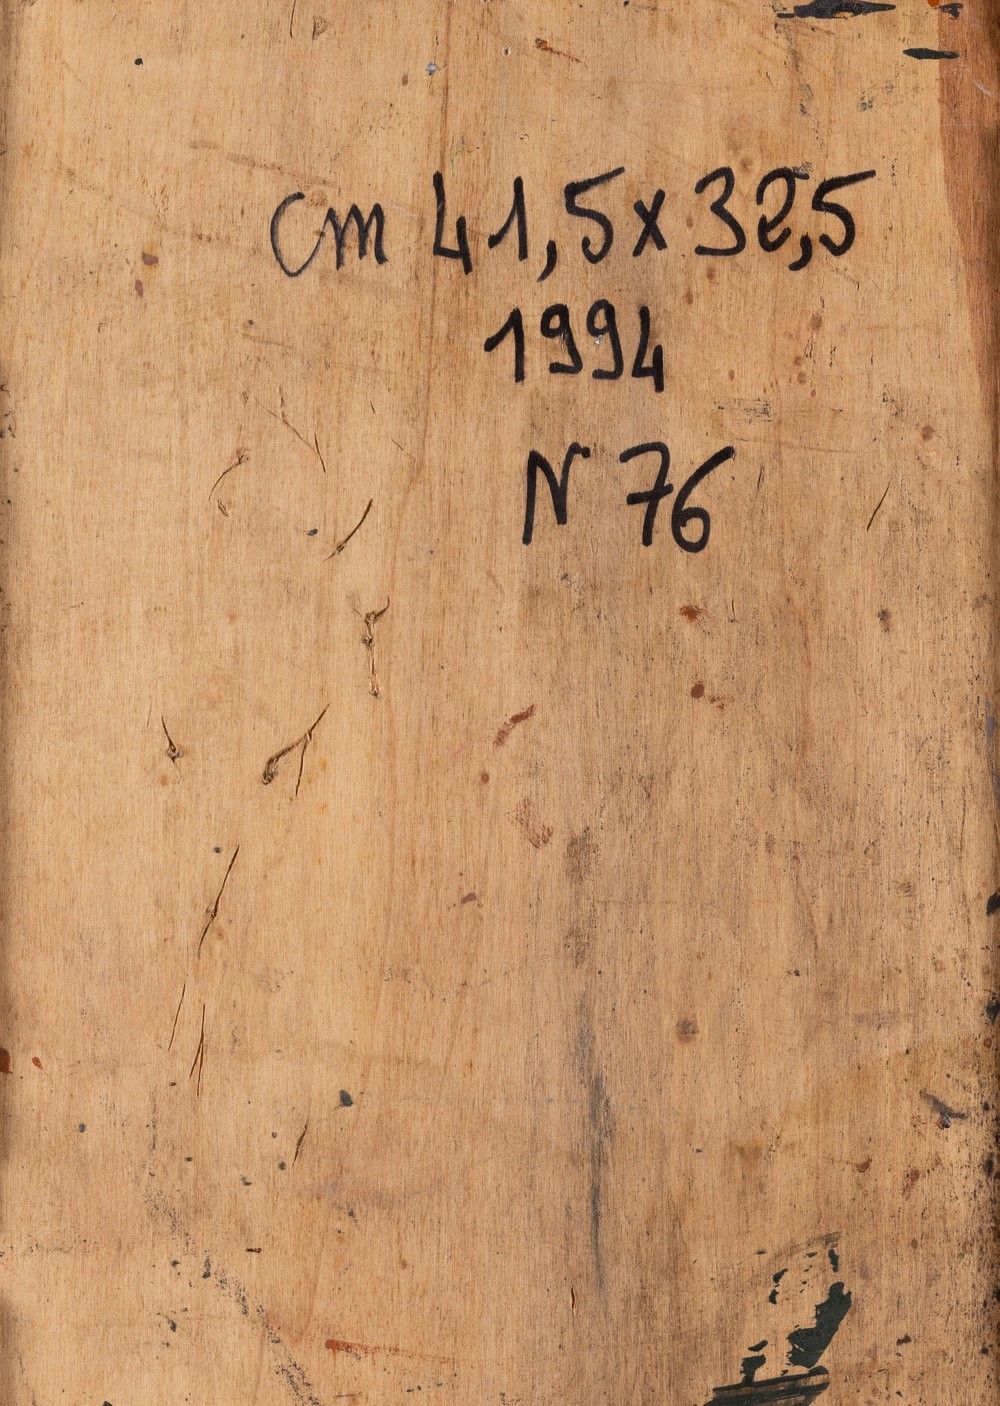 cm 41,5x32,5
1994
N 76